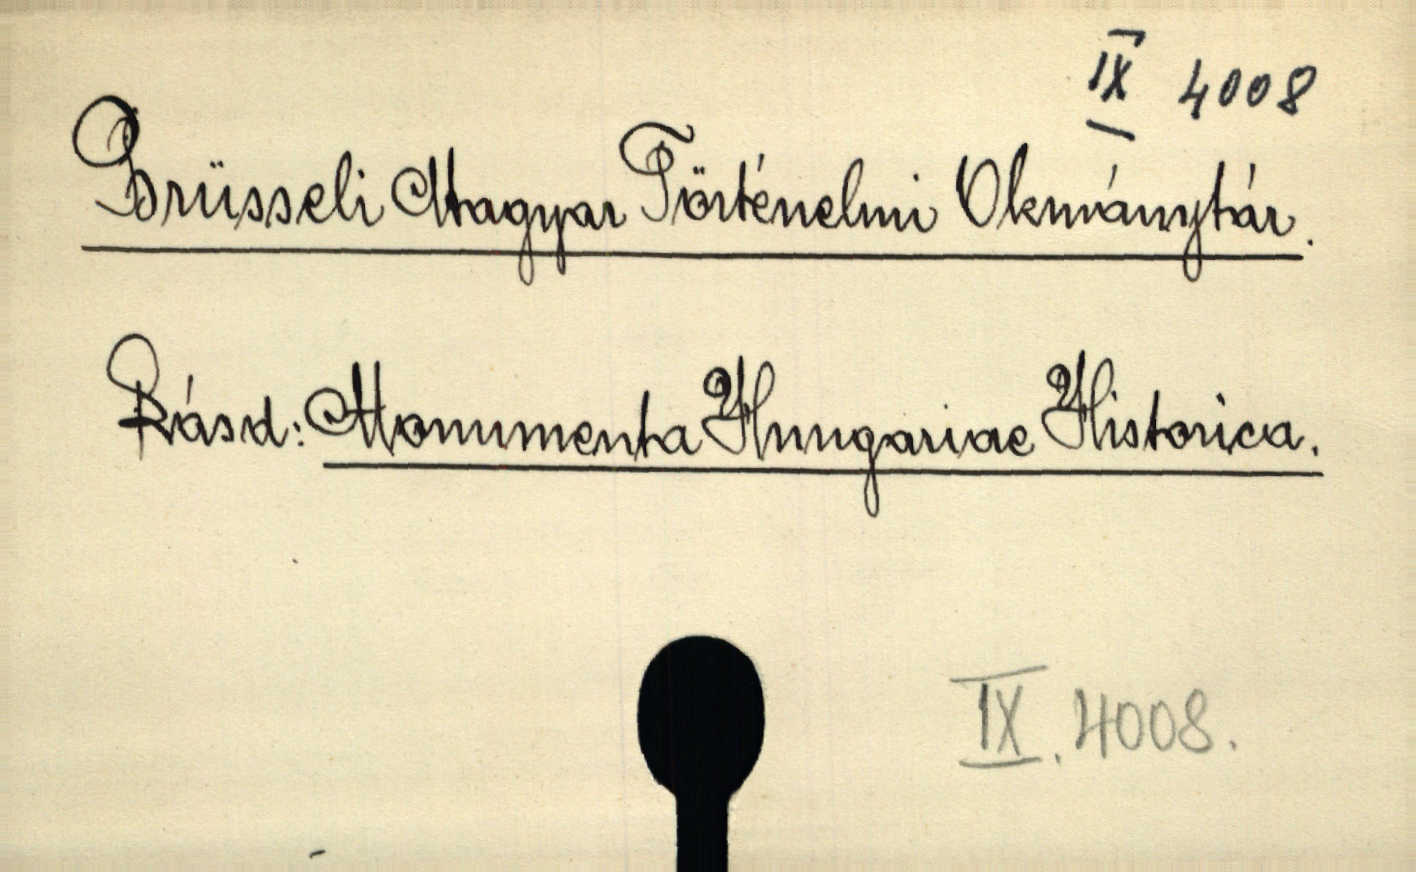 IX 4008
Brüsseli Magyar Történelmi Okmánytár.
Lásd: Monumenta Hungariae Historica.
IX. 4008.